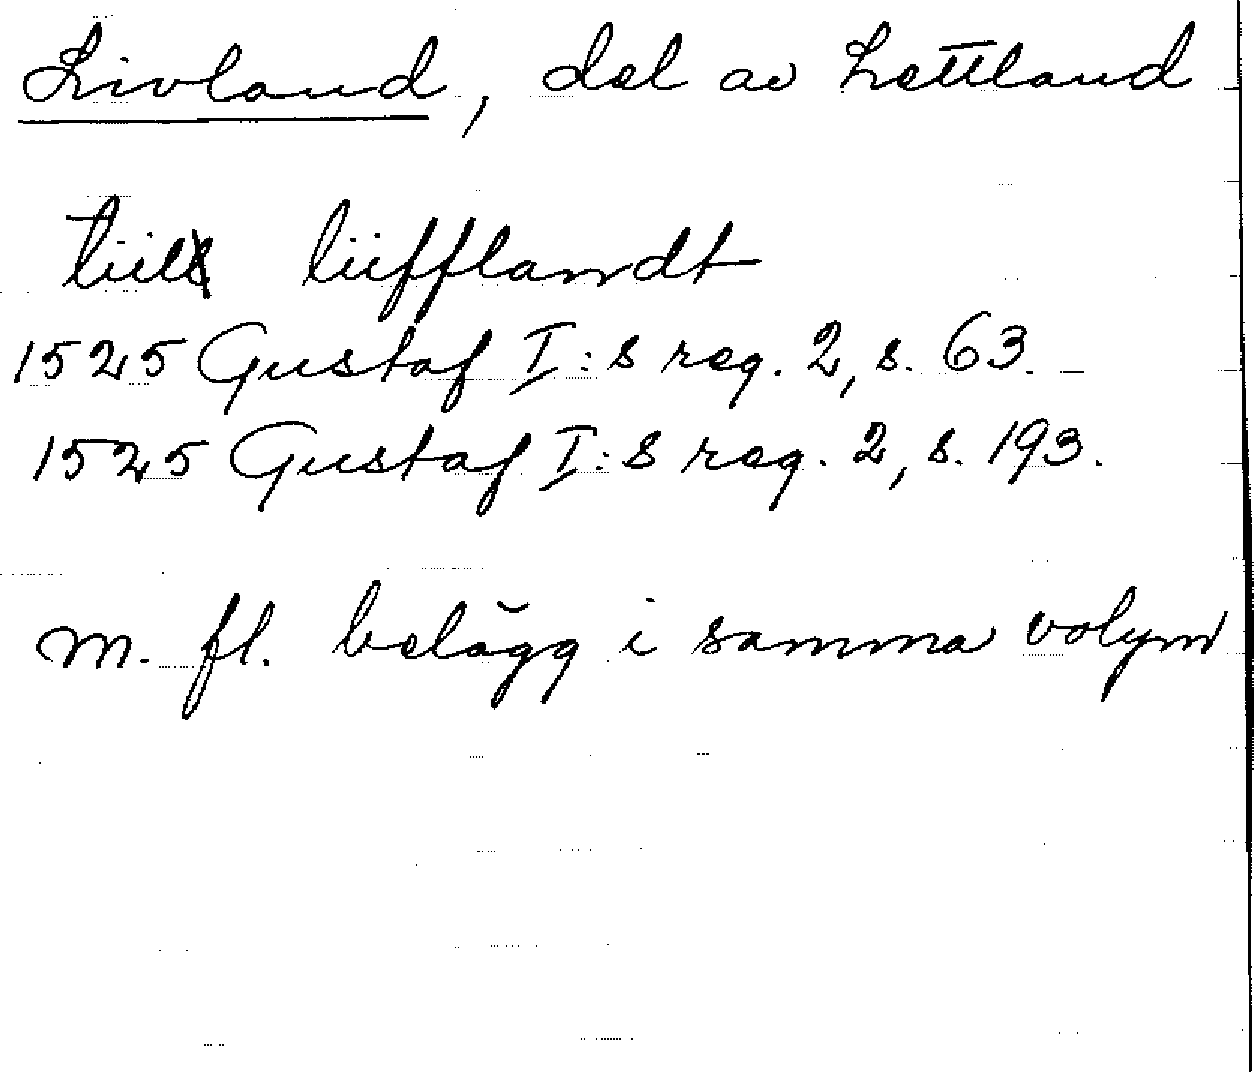 Livland, del av Lettland
tiil liifflandt
1525 Gustaf I:s reg. 2, s. 63.
1525 Gustaf I:s reg. 2, s. 193.
m. fl. belägg i samma volym